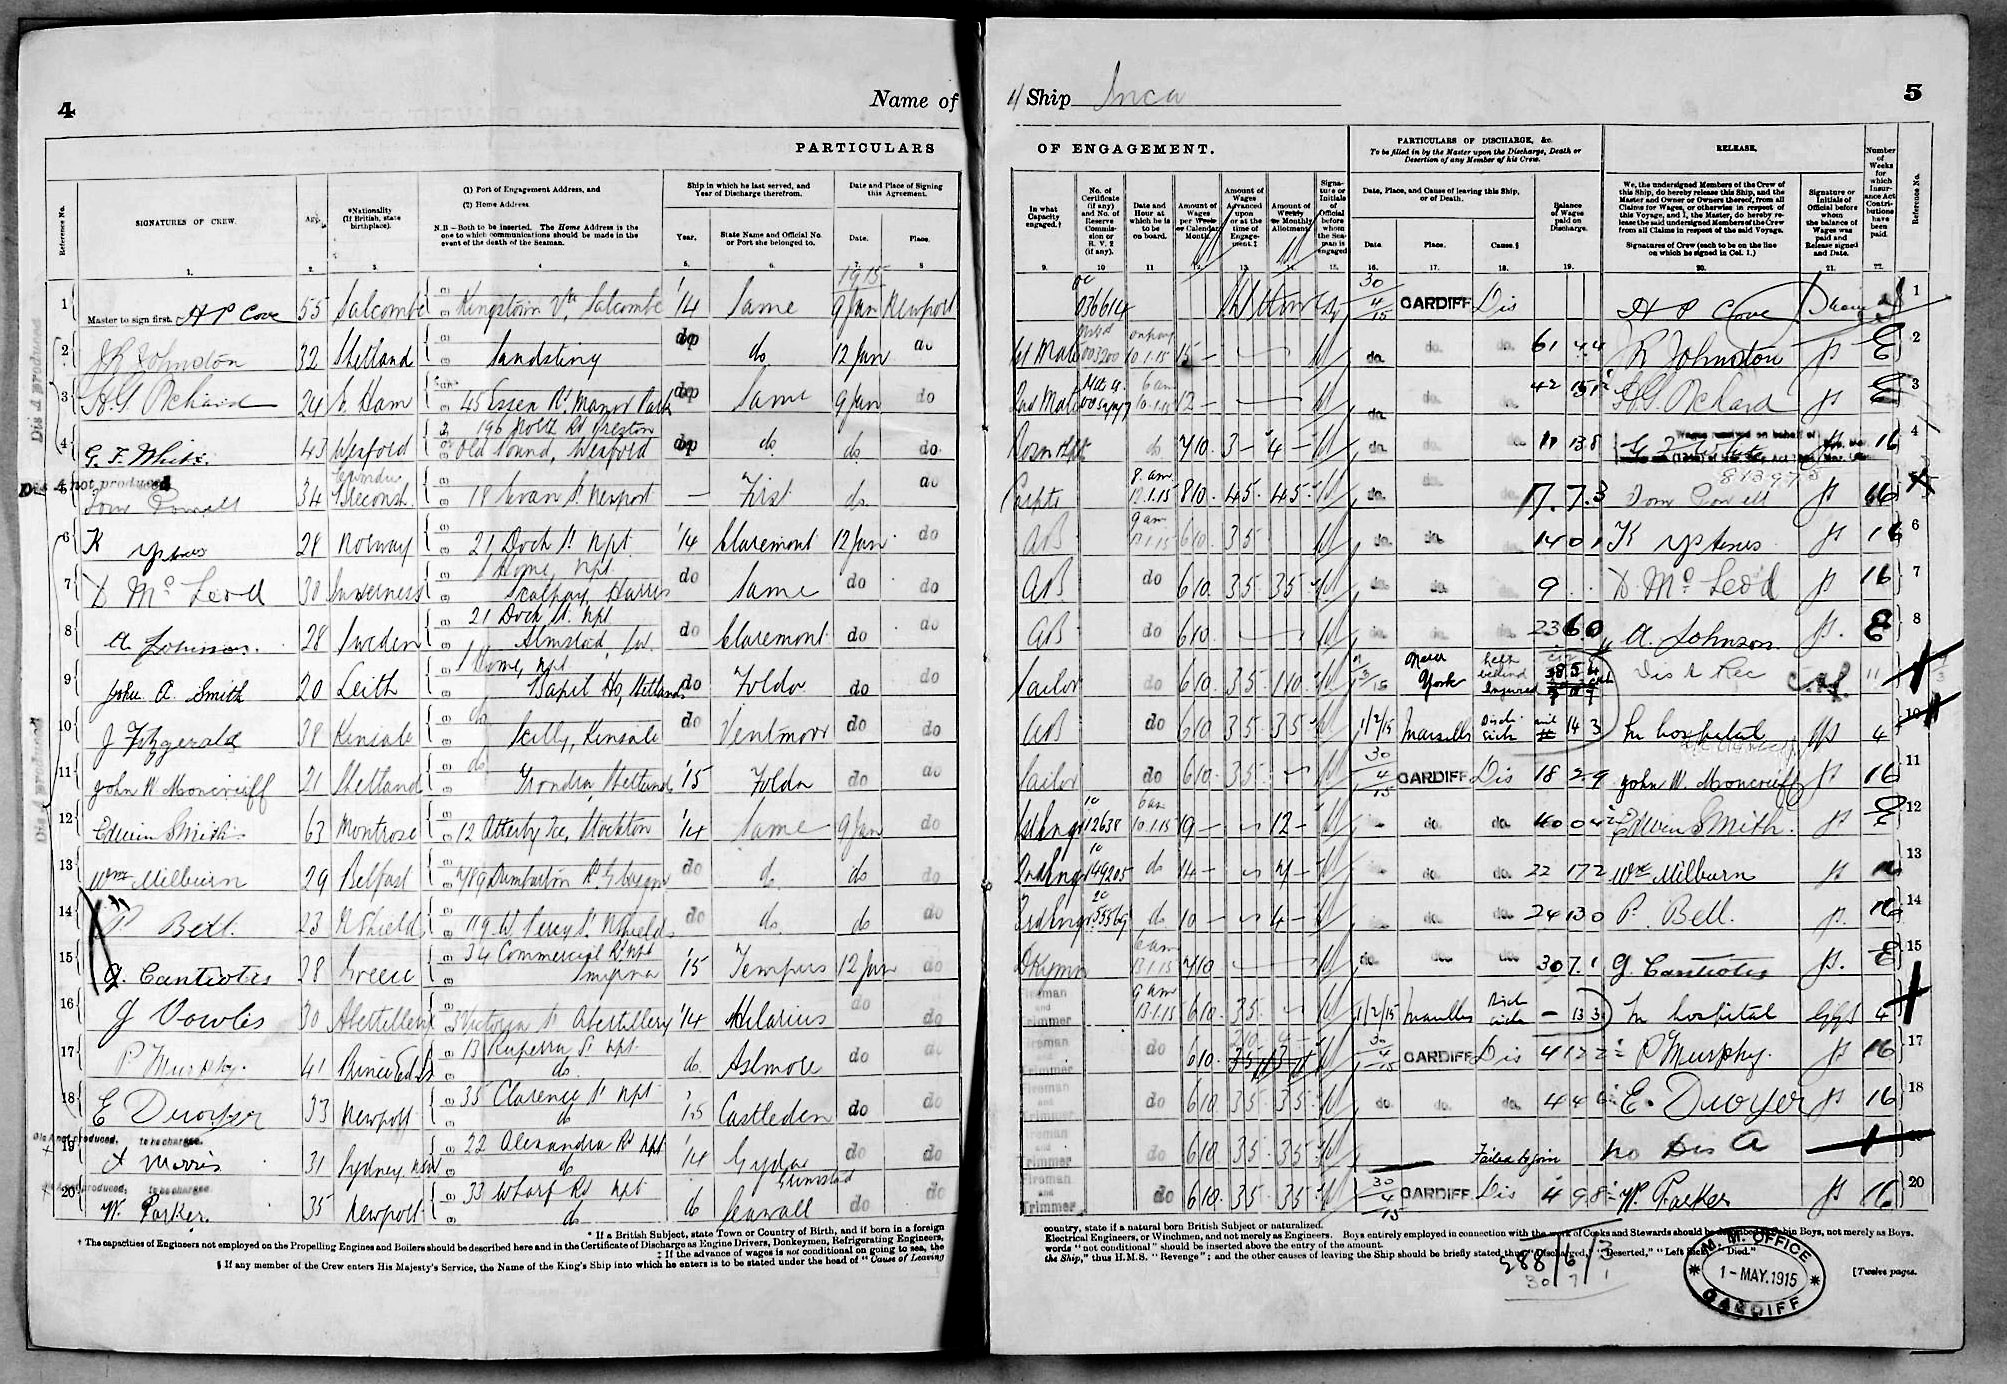 4
Name of
PARTICULARS
Reference No.
SIGNATURES OF CREW.
Age.
*Nationality (If British, state birthplace).
(1) Port of Engagement Address, and
(2) Home Address
N.B.—Both to be inserted. The Home Address is the one to which communications should be made in the event of the death of the Seaman.
Ship in which he last served, and Year of Discharge therefrom.
Year.
State Name and Official No. or Port she belonged to.
Date and Place of Signing this Agreement.
Date.
Place.
1. 2. 3. 4 5. 6. 7. 8
1915
1 Master to sign first. H P Cove 55 Salcombe Kingstown Va, Salcombe '14 Same 9 Jan Newport
2 R Johnston 32 Shetland Sandsting do do 12 Jan do
3 H.G. Orchard 24 E. Ham 45 Essex Rd Manor Park do Same 9 Jan do
4 G. F. White. 43 Wexford 196 Rd Preston
Old Pound, Wexford do do do do
Dis A not produced
5 Tom Powell 34 18 Evan St. Newport — First do do
6 K 28 Norway 21 Dock St Npt '14 Claremont 12 Jan do
7 D McLeod 30 Inverness Home, Npt
Scalpay, Harris do Same do do
8 A Johnson. 28 Sweden 21 Dock St. Npt
Almstad, Sw. do Claremont do do
9 John A. Smith 20 Leith Home, Npt
Ho, Shetland do Foldo do do
10 J Fitzgerald 38 Kinsale do
Scilly, Kinsale do Ventmoor do do
11 John W Moncrieff 21 Shetland do
Trondra, Shetland '15 Foldo do do
12 Edwin Smith 63 Montrose 12 Atterby Tce, Stockton '14 Same 9 Jan do
13 Wm Milburn 29 Belfast 789 Dumbarton Rd, Glasgow do do do do
14 P Bell. 23 N Shields 119 W Percy St. N Shields do do do do
15 G. Cantiotis 28 Greece 34 Commercial Rd Npt
Smyrna '15 Tempus 12 Jan do
16 J Vowles 30 Abertillery Victoria St Abertillery '14 Hilarius do do
17 P Murphy. 41 Prince Ed. Is 13 Ruperra St Npt
do do Ashmore do do
18 E Dwoyer 33 Newport 35 Clarence St Npt
do '15 Castleden do do
Dis A not produced, to be charged.
19 Morris 31 Sydney NSW 22 Alexandra Rd Npt
do '14 do do
Dis A not produced, to be charged.
20 W. Parker. 35 Newport 33 Wharf Rd Npt
do do Seawall do do
Dis A produced
Dis A produced
* If a British Subject, state Town or Country of Birth, and if born in a foreign
† The capacities of Engineers not employed on the Propelling Engines and Boilers should be described here and in the Certificate of Discharge as Engine Drivers, Donkeymen, Refrigerating Engineers,
‡ If the advance of wages is not conditional on going to sea, the
§ If any member of the Crew enters His Majesty's Service, the Name of the King's Ship into which he enters is to be stated under the head of "Cause of Leaving
Ship Inca
5
OF ENGAGEMENT.
PARTICULARS OF DISCHARGE, &c.
To be filled in by the Master upon the Discharge, Death or Desertion of any Member of his Crew.
RELEASE,
Number of Weeks for which Insurance Act Contributions have been paid.
Reference No.
In what Capacity engaged.†
No. of Certificate (if any) and No. of Reserve Commission or R. V. 2 (if any).
Date and Hour at which he is to be on board.
Amount of Wages per Week or Calendar Month.
Amount of Wages Advanced upon or at the time of Engagement.‡
Amount of Weekly or Monthly Allotment.
Signature or Initials of Official before whom the Seaman is engaged
Date, Place, and Cause of leaving this Ship, or of Death.
Date.
Place.
Cause.§
Balance of Wages paid on Discharge.
We, the undersigned Members of the Crew of this Ship, do hereby release this Ship, and the Master and Owner or Owners thereof, from all Claims for Wages, or otherwise in respect of this Voyage, and I, the Master, do hereby release the said undersigned Members of the Crew from all Claims in respect of the said Voyage.
Signatures of Crew (each to be on the line on which he signed in Col. 1.)
Signature or Initials of Official before whom the balance of Wages was paid and Release signed and Date.
9. 10 11 12. 13. 14. 15. 16. 17. 18. 19. 20. 21. 22.
036614 30/4/15 CARDIFF Dis H P Cove 1
1st Mate 003200 10.1.15 15 — do. do. do. 61 4 4 R Johnston E 2
2nd Mate 6 am 10.1.15 12 — do. do. 42 15 H.G. Orchard E 3
Bosn do 7 10. 3 — 4 — do. do. do. 11 13 8 Wages received on behalf of 16 4
Carptr 8 am 12.1.15 8 10. 45. 45. do. do. do. 17. 7. 3 Tom Powell 16 5
AB 9 am 13.1.15 6 10. 35 do. do. 14 0 1 K 16 6
AB do 6 10. 35 35 do. do. do. 9 . . D McLeod 16 7
AB do 6 10. — do. do. do. 23 6 0 A. Johnson. E 8
Sailor do 6 10. 35 1 10. 3/15 New York Left behind Injured Dis A Rec 11 9
AB do 6 10. 35 35 1/2/15 Marseilles Disch. sick 14 3 In hospital 4 10
Sailor do 6 10. 35 30/4/15 CARDIFF Dis 18 2 9 John W. Moncrieff 16 11
1st Engr 12638 6 am 10.1.15 19 — 12 — do. do. 40 0 4 Edwin Smith. E 12
2nd Engr 149205 do 14 — 7 — do. do. 22 17 2 Wm Milburn 13
3rd Engr 55569 do 10 — 4 — do. do. 24 13 0 P. Bell. 16 14
Dkymn 6 am 13.1.15 7 10 do. do. do. 30 7. 1 G. Cantiotis E 15
Fireman and Trimmer 9 am 13.1.15 6 10. 35. 1/2/15 Marseilles Disch sick — 13 3 In hospital 4 16
Fireman and Trimmer do 6 10. 30/4/15 CARDIFF Dis 4 12 2 P Murphy. 16 17
Fireman and Trimmer do 6 10. 35 35. do. do. do. 4 4 6 E. Dwoyer 16 18
Fireman and Trimmer do 6 10. 35 35. Failed to join No Dis A 19
Fireman and Trimmer do 6 10. 35 35. 30/4/15 CARDIFF Dis 4 9 8 W. Parker 16 20
country, state if a natural born British Subject or naturalized.
Electrical Engineers, or Winchmen, and not merely as Engineers. Boys entirely employed in connection with the work of Cooks and Stewards should be described as Cabin Boys, not merely as Boys.
words "not conditional" should be inserted above the entry of the amount.
the Ship," thus H.M.S. "Revenge"; and the other causes of leaving the Ship should be briefly stated thus "Discharged," "Deserted," "Left Sick," "Died."
288/6/3
30 7 1
M. M. OFFICE
1-MAY.1915
CARDIFF
[Twelve pages.